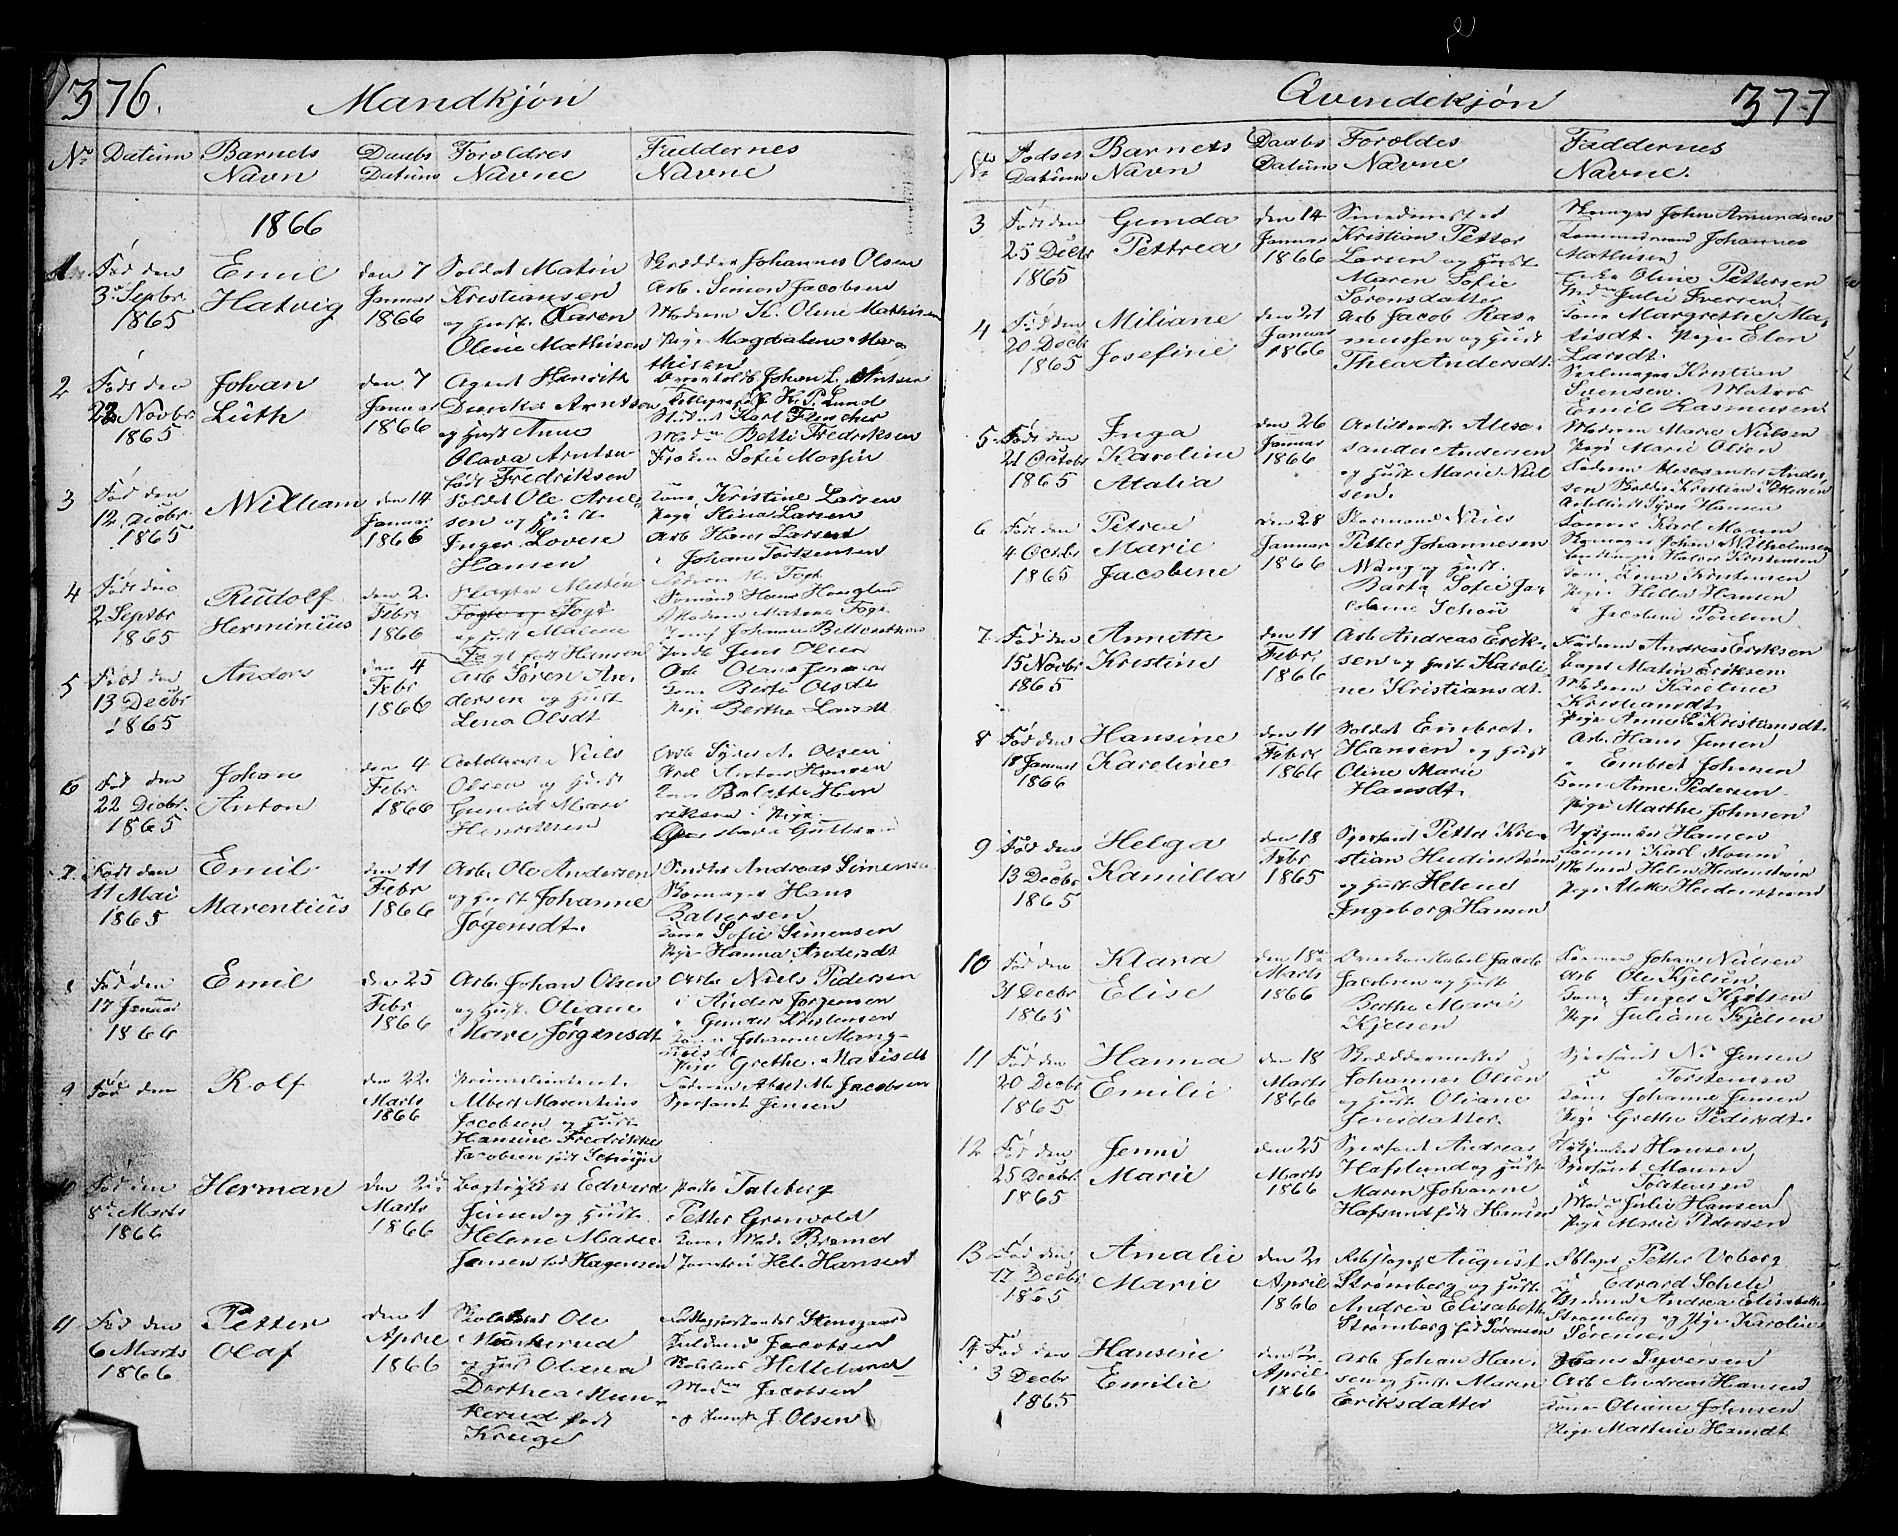 376.
Mandkjøn
No Datum Barnets Navn Daabs Datum Foroldres Navne Faddernes Navne
1866
1 Fød den 3 Sepbr 1865
Emil Hatvig
den 7 Januar 1866
Soldat Matin
Kristiansen
og hust. Karen
Olene Mathisen
Skrædder Johannes Olsen
Arb. Simon Jacobsen
Madrem K. Olene Mathisen
Pige Magdalene Ma
thisen
2 Føds den 23 Novbr 1865
Johan Luth
den 7 Januar 1866
Agent Henrik
Arntsen
og hust Anne
Olava Arntsen
født Fredriksen
Johan L. Arntsen
H. P. Lund
Student Karl Fleischer
Betti Fredriksen
Frøken Sofie
3 Fød den 12 Decbr 1865
William
den 14 Januar 1866
Soldat Ole Arne
sen og hust.
Inger Lovise
Hansen
Kone Kristine Larsen
Pige Stina Larsen
Arb Hans Larsen
" Johan Torstensen
4 Føds den 2 Septbr 1865
Rudolf Herminius
den 2. Febr 1866
og hust Malene
Fogt født Hansen
Jens Olsen
5 Fød den 13 Decbr 1865
Anders
den 4 Febr 1866
Arb Søren An
dersen og hust
Lena Olsdt
Arb Olaus Jensen
Kone Berte Olsdt
Pige Berthe Larsdt
6 Fød den 22 Decbr. 1865
Johan Anton
den 4 Febr 1866
Niels
Olsen og hust
Gunild Mari
Henriksen
Olsen
Anton Hansen
Hen
riksen Pige
7 Født den 11 Mai 1865
Emil Marentius
den 11 Febr 1866
Arb. Ole Andersen
og hust Johanne
Jøgensdt.
Andreas Simensen
Skomager Hans
Baltersen
Kone Sofie Simensen
Pige Hanna Andersdt
8 Fød den 17 Januar 1866
Emil
den 25 Febr 1866
Arb. Johan Olsen
og hust. Oliane
Marie Jørgensdt
Arb. Niels Pedersen
" Anders Jørgensen
" Gunder Kristensen
Kone Johanne Mang-
Pige Grethe Matisdt
9 Fød den
Rolf
den 22. Marts 1866
Albert Marentius
Jacobsen og hust
Hansine Fredrikke
Jacobsen født
Jacobsen
Sjersant Jensen
10 Fød den 8 Marts 1866
Herman
den 25 Marts 1866
Bogtrykker Edvard
Jensen og hust.
Helene Marie
Jensen fød Hagensen
Taleberg
Petter Grønvold
Kone Mad. Bremer
Jomfru Hel. Hansen
11 Fød den 6 Marts 1866
Petter Olaf
den 1 April 1866
Skolelærer Ole
Munkerud
og hust Olena
Dorthea Mun
kerud født
Krüger
Stensgaard
Jacobsen
Skolelærer
Madm Jacobsen
og J. Olsen
Qvindekjøn
377
No Fødses Datum Barnets Navn Daabs Datum Foroldes Navne Faddernes Navne.
3 Født den 25 Decbr 1865
Gunda Pettrea
den 14 Januar 1866
Smedmester
Kristian Petter
Larsen og hust
Maren Sofie
Sørensdatter
Skomager John Amundsen
Johannes
Mathisen
Enke Oline Pettersen
Julie Iversen
4 Fød den 20 Decbr 1865
Miliane Josefine
den 21 Januar 1866
Arb Jacob Ras-
mussen og hust
Thea Andersdt.
Kone Margrethe Ma-
tisdt. Pige Elen
Larsdt.
Seilmager Kristian
Svensen. Matros
Emil Rasmusen
5. Født den 21 Octobr 1865
Inga Karoline Atalia
den 26 Januar 1866
Artillerist Alexs-
sander Andersen
og hust Marie Niel
sen.
Madrem Marie Nielsen
Pige Marie Olsen
Faderen Alexsander Ander
sen Kristian Pettersen
Hansen
6 Født den 4 Octbr 1865
Petrea Marie Jacobine
den 28 Januar 1866
Stormand Niels
Petter Johannesen
Wang og hust.
Sofie Ja
cobine
Karl Moum
Skomager Johan Wilhelmsen
Kone Lena Kristensen
Pige Helle Hansen
" Jacobine
7. Fød den 15 Novbr 1865
Annette Kristine
den 11 Febr. 1866
Arb Andreas Erik-
sen og hust Karoli-
ne Kristiansdt.
Faderen Andreas Eriksen
Bager Matin Eriksen
Madrem Karoline
Kristiansdt.
Pige Anne L Kristiansdt
8 Fød den 18 Januar 1866
Hansine Karoline
den 11 Febr. 1866
Soldat Embret
Hansen og hust
Oline Marie
Hansdt.
Arb. Hans Jensen
" Embret Johnsen
Kone Anne Pedersen
Pige Marthe Johnsen
9 Fød den 13 Decbr 1865
Helga Kamilla
den 18 Febr 1865
Sjersant Petter Kri-
stian Hedenstrøm
og hust Helene
Ingeborg Hansen
Hansen
Karl Moum
Madm Helen Hedenstrøm
Pige Hedenstrøm
10 Fød den 31 Decbr 1865
Klara Elise
den 18 Marts 1866
Jacob
Jacobsen og hust
Berthe Marie
Kjelsen
Johan Nielsen
Arb Ole Kjelsen
Kone Inger Kjelsen
Pige Juliane Kjelsen
11 Fød den 20 Decbr 1865
Hanna Emilie
den 18 Marts 1866
Skreddermester
Johannes Olsen
og hust Oliane
Jensdatter.
Sjersant N. Jensen
d Torstensen
Kone Johanne Jensen
Pige Grethe Pedersdt.
12 Fød den 25 Decbr. 1865
Jenni Marie
den 25 Marts 1866
Sjersant Andreas
Hafslund og hust
Maren Johanne
Hafslund født Hansen
Hansen
Sjersant Moum
d Torstensen
Madm Julie Hansen
Pige Marie Pedersen
13 Fød den 17 Decbr 1865
Amalie Marie
den 2 April 1866
Rebslager August
Strømberg og hust
Andrea Elisabeth
Strømberg fød Sørensen
Petter Veborg
d Edvard Schele
Madrem Andrea Elisabeth
Strømberg og Pige Karoline
Sørensen
14 Fød den 3 Decbr 1865
Hansine Emilie
den 2 April 1866
Arb Johan Han-
sen og hust Maren
Eriksdatter
Hans Syversen
Arb Andreas Hansen
Kone Oliane Johnsen
Pige Martine Hansdt